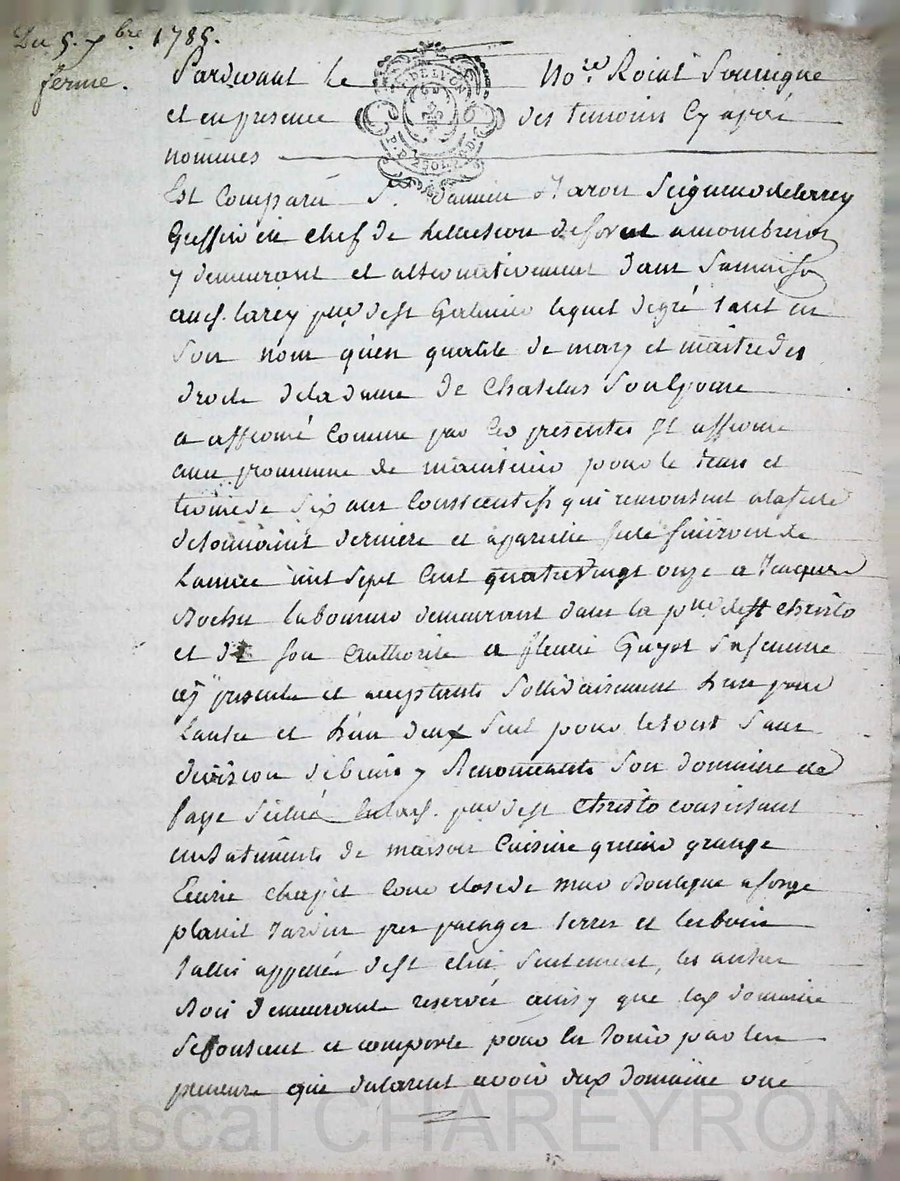 Du 5. 7bre 1785.
ferme.
Pardevant le Nore Roial Soussigne
G. DE LYON
et en presence des temoins Cy après
nommes
Est Comparu Sr. Damien
Greffier en chef de Lellection de forest a montbrison
y demeurant et alternativement dans Samaison
de st Galmier lequel degré tant en
Son nom qu'en qualité de mary et maitre des
droits de la dame de Chatelus Son Epouse
a affermé Comme par Ces presentes Il afferme
avec promesse de maintenir pour le tems et
terme de Six ans Consecutifs qui remontent a la feste
de toussaint derniere et a pareille feste finiront de
Lannée mil Sept Cent quatrevingt onze a Jacques
laboureur demeurant dans la psse de st Christo
et de Son authorité a fleurie Guyot Safemme
cy presents et acceptants Sollidairement Lun pour
Lautre et Lun deux Seul pour letout Sans
division debiens y Renonceants Son domaine de
faye Scitué psse de st Christo consistant
en batiments de maison Cuisine grenier grange
Ecurie Chapit Cour close de mur Boutique a forge
Jardin prés pacages terres et les bois
taillis appellée de st Seulement, les autres
Bois demeurants reservée ainsy que led domaine
Seconsient et comporte pour en Jouir par les
preneurs que dud domaine
Pascal CHAREYRON